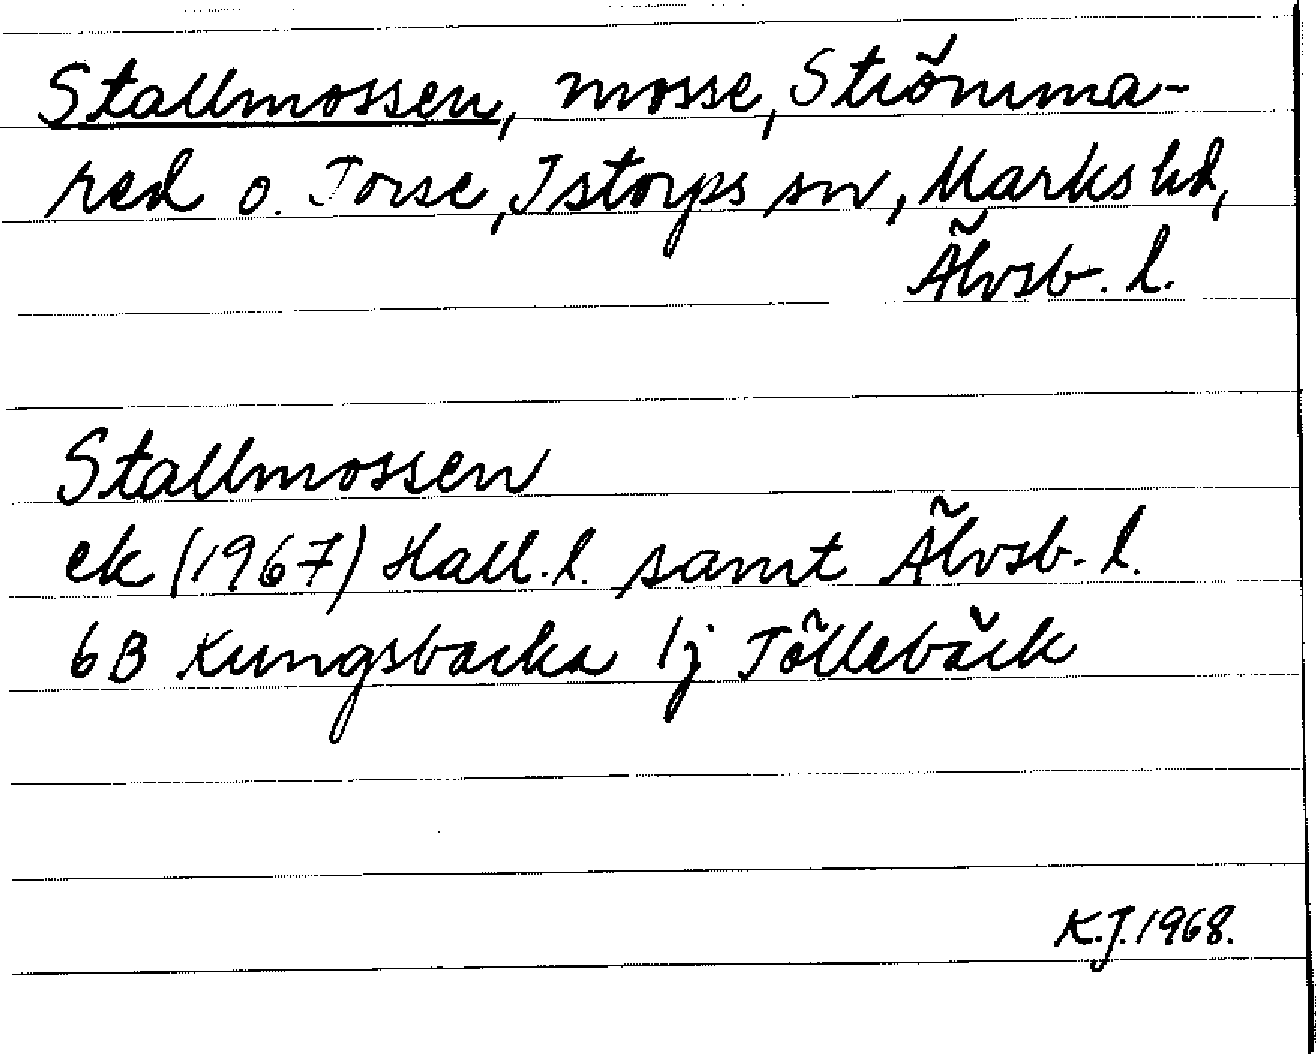 Stallmossen, mosse, Strömma-
red o. Torse, Istorps sn, Marks hd,
Älvsb. l.
Stallmossen
ek (1967) Hall. l. samt Älvsb. l.
6B Kungsbacka 1j Töllebäck
K.J. 1968.